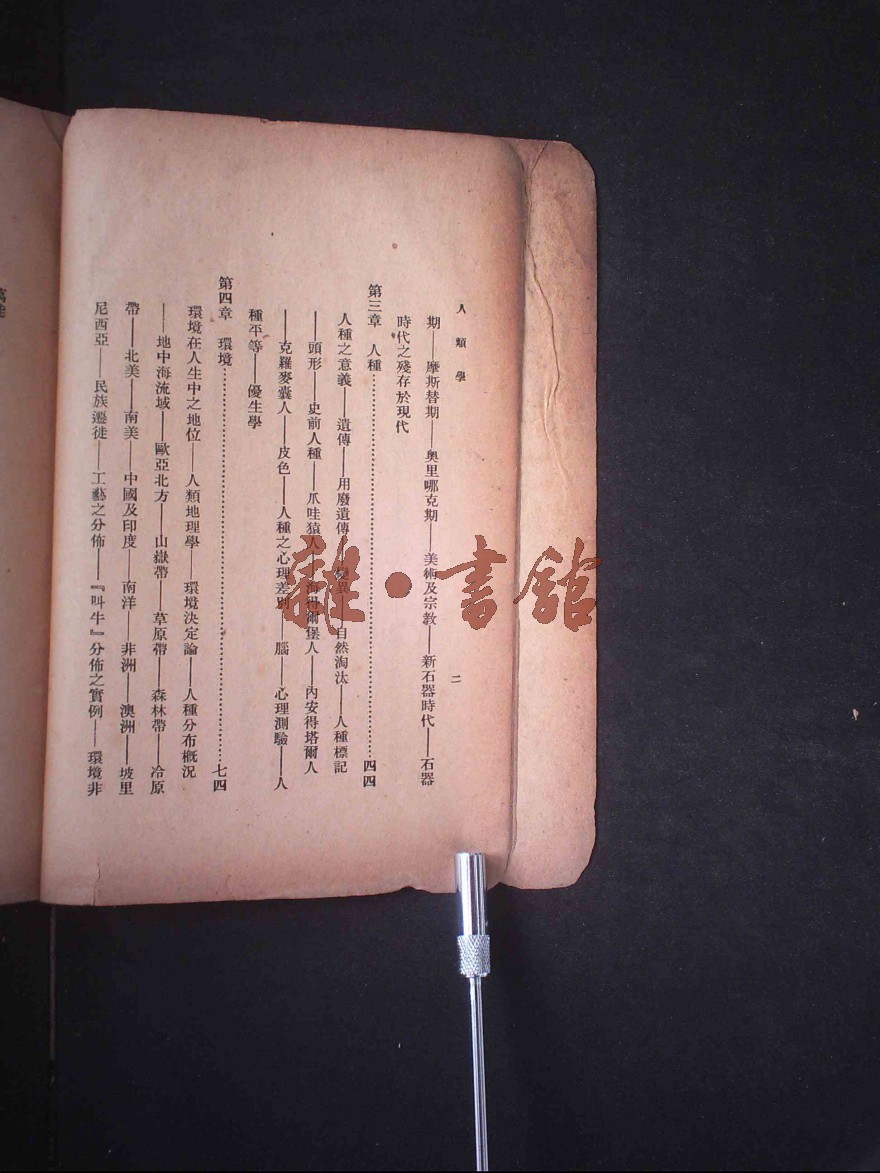 人類學
二
期——摩斯替期——奧里哪克期——美術及宗教——新石器時代——石器
時代之殘存於現代
第三章 人種……四四
人種之意義——遺傳——用廢遺傳——變異——自然淘汰——人種標記
——頭形——史前人種——爪哇猿人——海得爾堡人——內安得塔爾人
——克羅麥囊人——皮色——人種之心理差別——腦——心理測驗——人
種平等——優生學
第四章 環境……七四
環境在人生中之地位——人類地理學——環境決定論——人種分布概況
——地中海流域——歐亞北方——山嶽帶——草原帶——森林帶——冷原
帶——北美——南美——中國及印度——南洋——非洲——澳洲——坡里
尼西亞——民族遷徙——工藝之分佈——『叫牛』分佈之實例——環境非
雜·書館